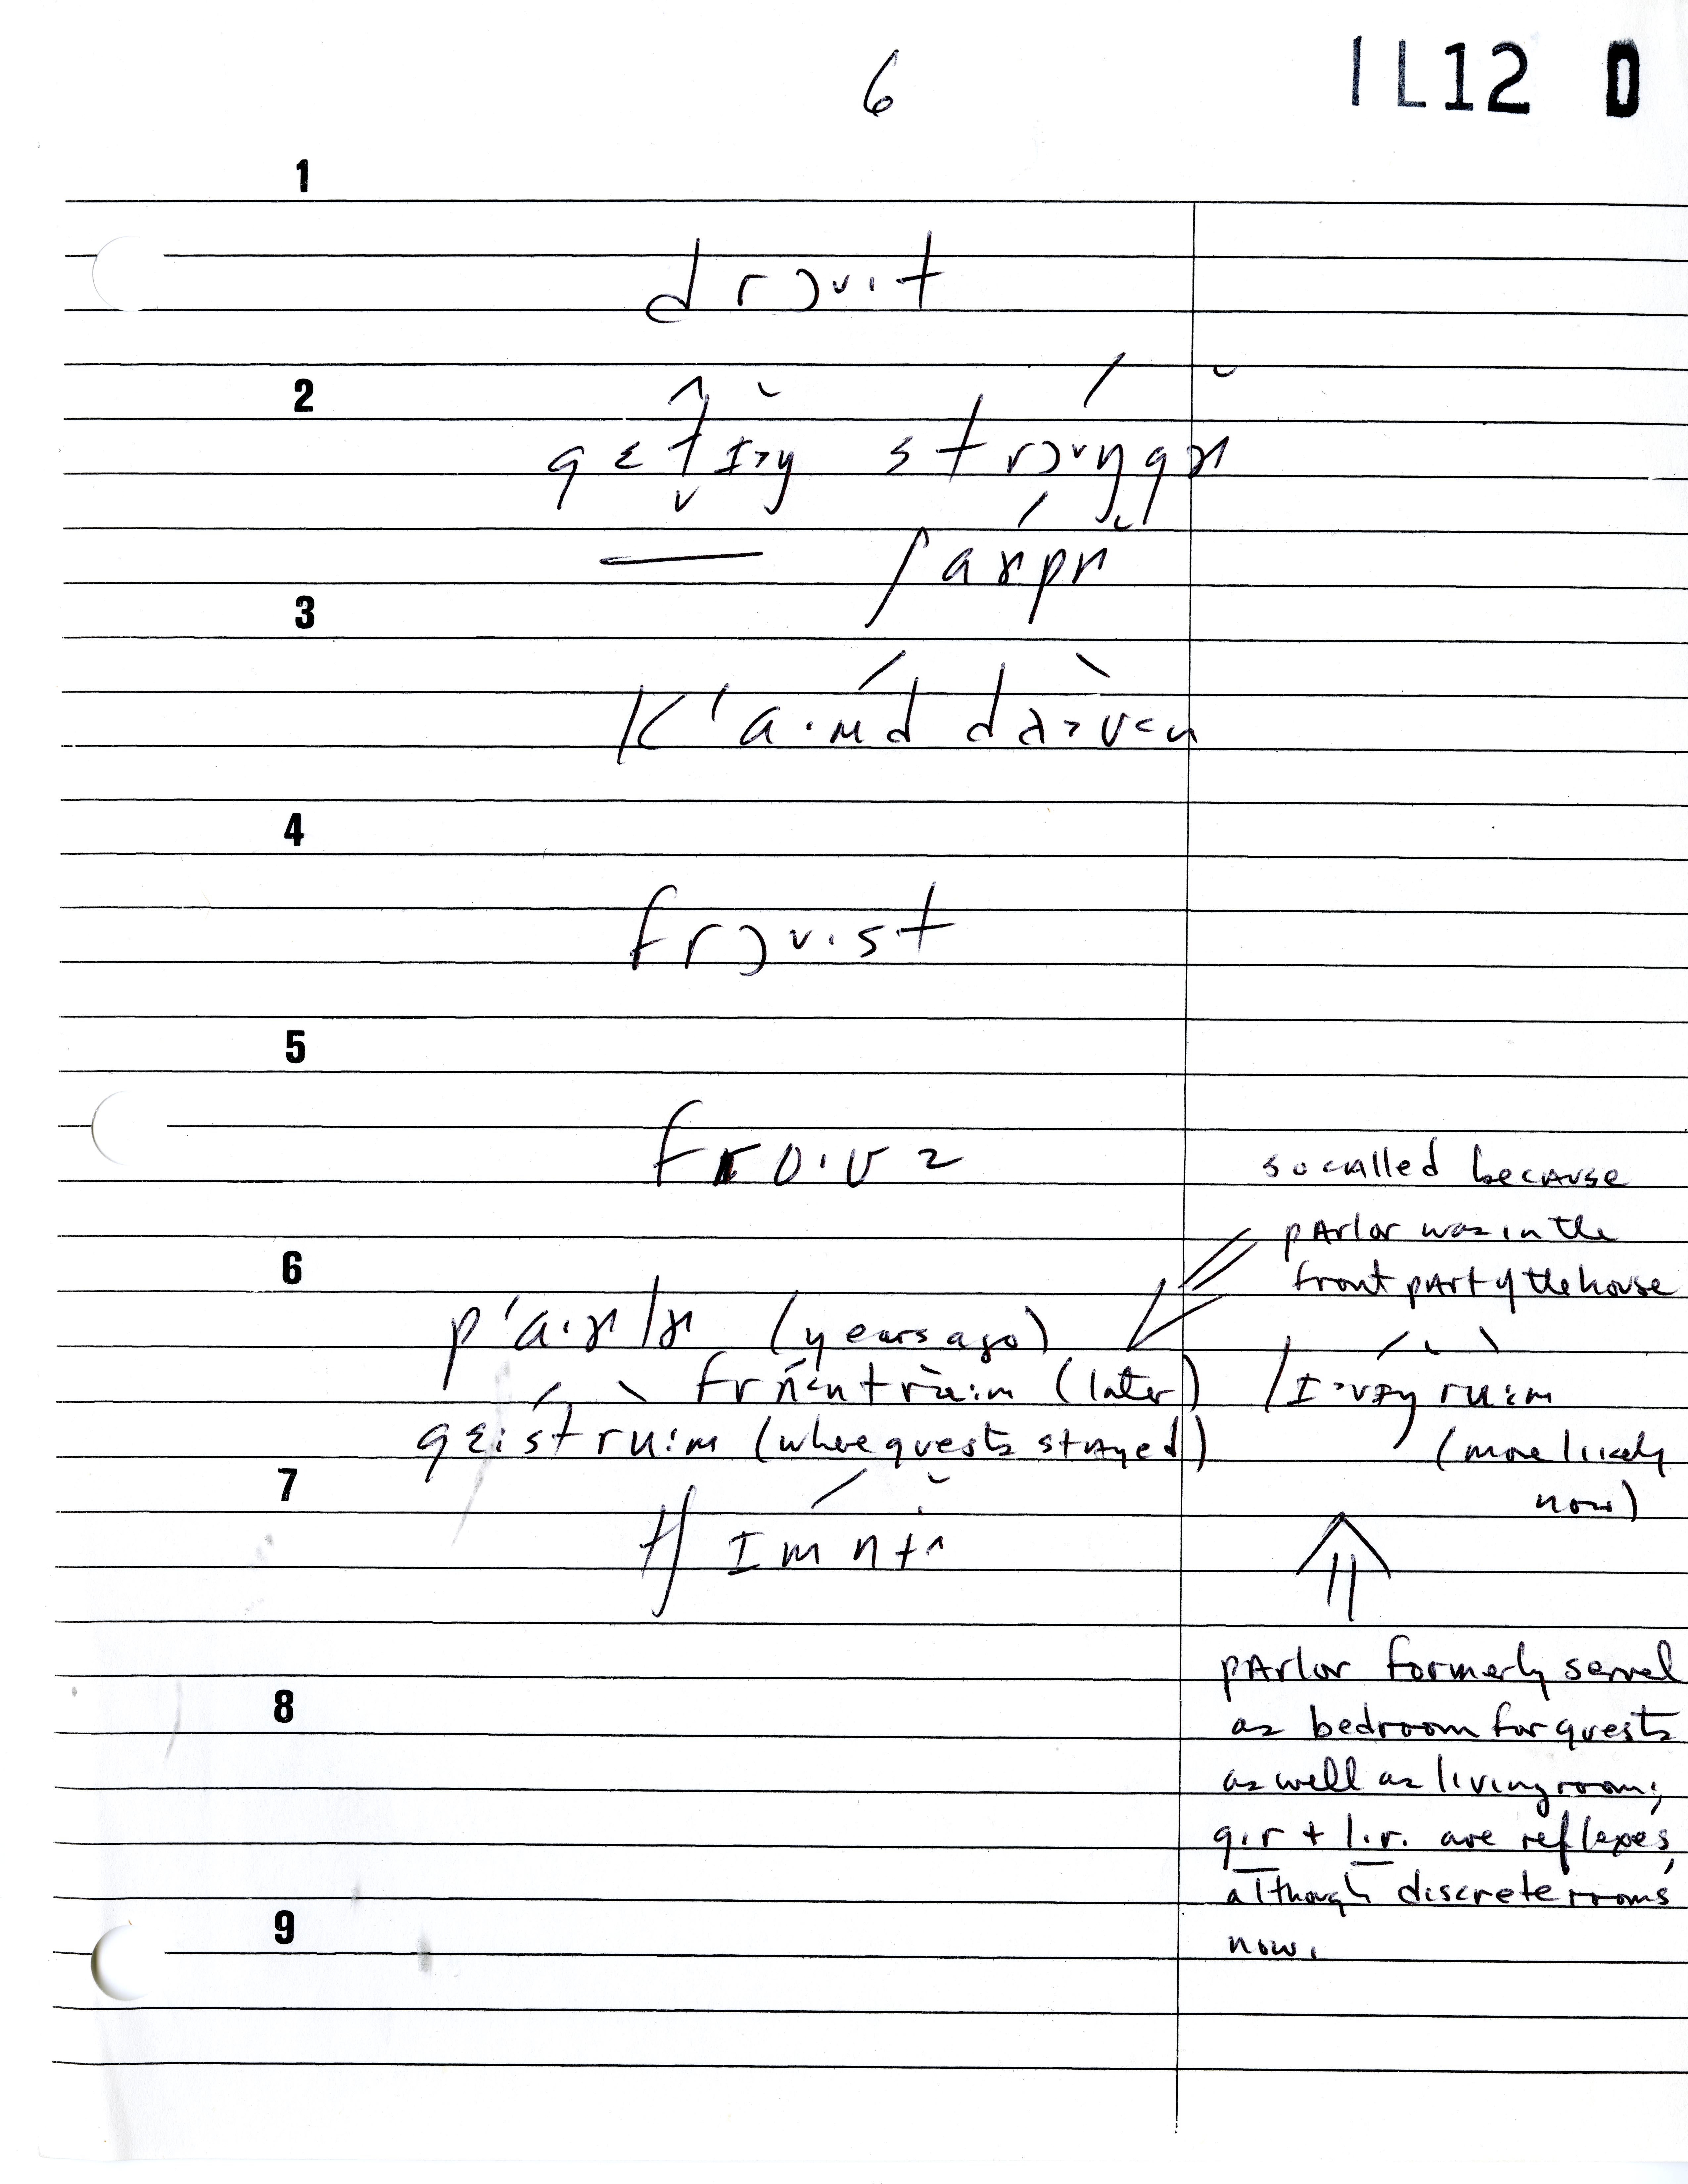 6
IL12 0
1
drɔv.t
2
gɛt̬ɪ>ŋ strɔvŋgɚ
— ʃaɚpɚ
3
k'a.nd dá>v<n
4
frɔv.st
5
fro.ʊz
so called because
parlor was in the
front part of the house
6
p'a.ɚlɚ (years ago)
frʌ̃<ntrʉ:m (later)
lɪ>vɪŋ ru:m
gɛ:stru:m (where guests stayed)
(more likely
now)
7
tʃɪmntɪ^
parlor formerly served
8
as bedroom for guests
as well as living room;
g.r + l.r. are reflexes,
although discrete rooms
9
now.